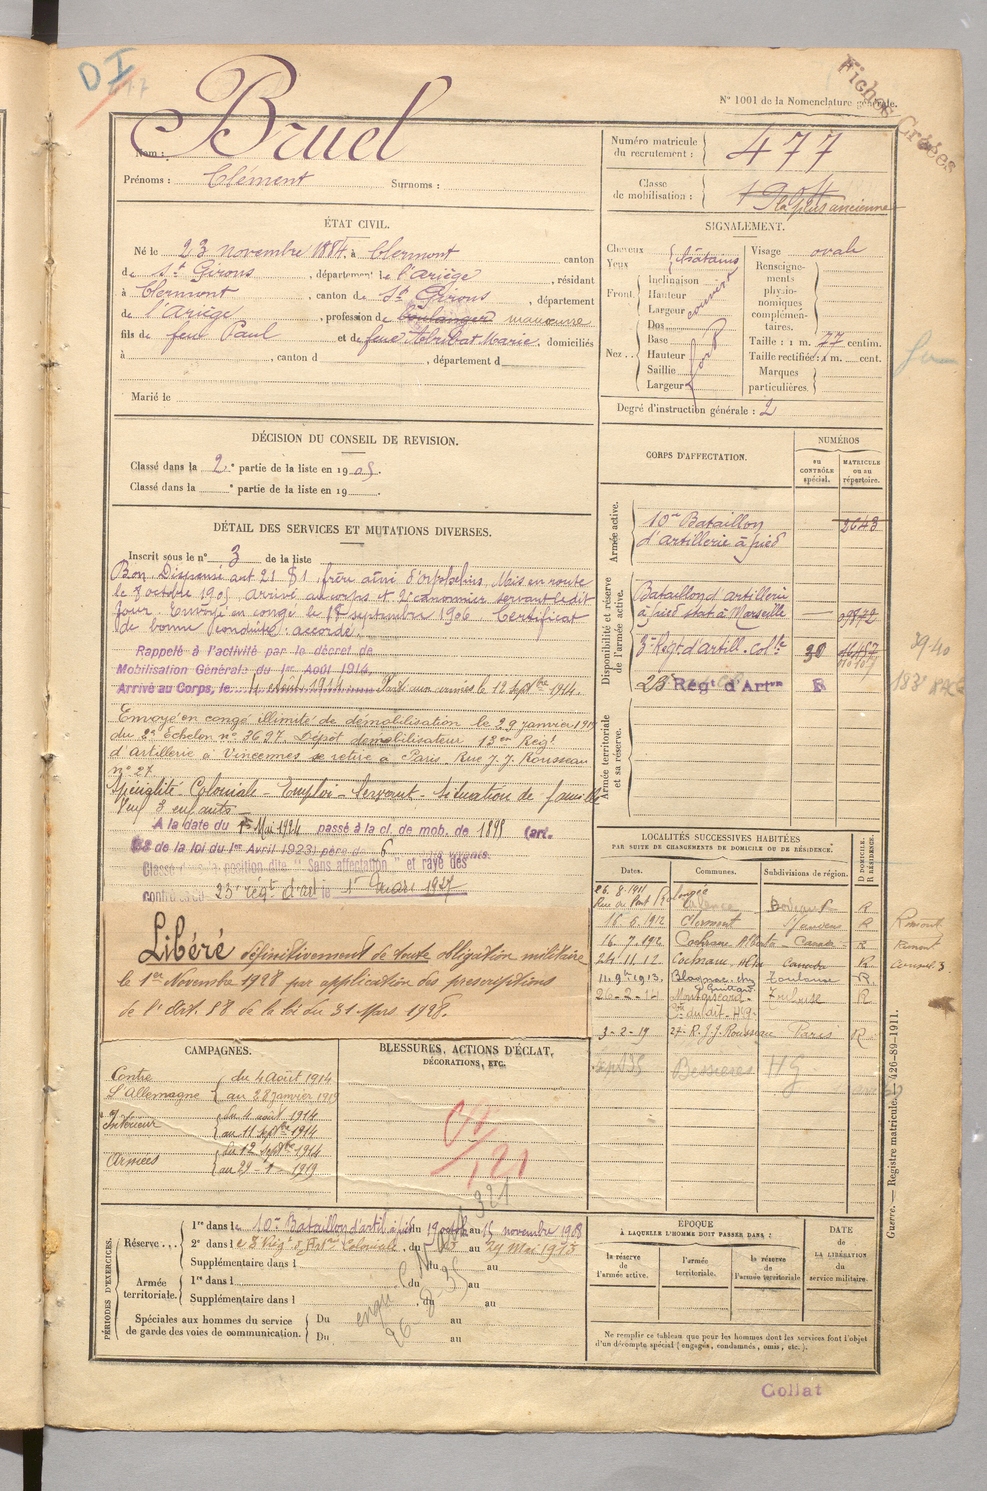 DI
N° 1001 de la Nomenclature générale.
Fiches Créées
Nom : Bruel
Prénoms : Clément Surnoms :
Numéro matricule du recrutement : 477
Classe de mobilisation : La plus ancienne
ÉTAT CIVIL.
Né le 23 novembre 1884 à Clermont canton
de St Girons, département de l'Ariège, résidant
à Clermont, canton de St Girons, département
de l'Ariège, profession de boulanger manœuvre
fils de feu Paul et de feue Abribat Marie, domiciliés
à , canton d , département d
Marié le
SIGNALEMENT.
Cheveux
Yeux
châtains
Front
Inclinaison
Hauteur
Largeur
couvert
Nez
Dos
Base
Hauteur
Saillie
Largeur
fort
Visage ovale
Renseignements physionomiques complémentaires.
Taille : 1 m. 77 centim.
Taille rectifiée : 1 m. cent.
Marques particulières.
Degré d'instruction générale : 2
DÉCISION DU CONSEIL DE REVISION.
Classé dans la 2e partie de la liste en 1905.
Classé dans la e partie de la liste en 19 .
DÉTAIL DES SERVICES ET MUTATIONS DIVERSES.
Inscrit sous le n° 3 de la liste
Bon Dispensé art 21 §1, frère aîné d'orphelins. Mis en route
le 8 octobre 1905 arrivé au corps et 2e canonnier servant le dit
jour. Envoyé en congé le 18 septembre 1906. Certificat
de bonne conduite : accordé.
Rappelé à l'activité par le décret de
Mobilisation Générale du 1er Août 1914.
Arrivé au Corps, le 4 Août 1914 Parti aux armées le 12 septbre 1914.
Envoyé en congé illimité de démobilisation le 29 janvier 1919
du 2e échelon n° 3697. Dépôt démobilisateur 13e Régt
d'Artillerie à Vincennes se retire à Paris Rue J. J. Rousseau
n° 27
Spécialité Coloniale - Emploi - Servant - Situation de famille
Veuf 3 enfants
A la date du 1er Mai 1924 passé à la cl. de mob. de 1895 (art.
58 de la loi du 1er Avril 1923) père de 6 vivants.
Classé dans la position dite "Sans affectation" et rayé des
contrôles du 23e régt d'art le 1er Mars 1927
Libéré définitivement de toute obligation militaire
le 1er Novembre 1928 par application des prescriptions
de l'Art. 58 de la loi du 31 Mars 1928.
CORPS D'AFFECTATION.
NUMÉROS
au CONTRÔLE spécial.
MATRICULE ou au répertoire.
Armée active.
10e Bataillon d'artillerie à pied 2643
Disponibilité et réserve de l'armée active.
Bataillon d'artillerie à pied stat à Marseille
3e Régt d'Artill. Colle 30
23e Régt d'Artrie R
Armée territoriale et sa réserve.
LOCALITÉS SUCCESSIVES HABITÉES
PAR SUITE DE CHANGEMENTS DE DOMICILE OU DE RÉSIDENCE.
Dates. Communes. Subdivisions de région. D DOMICILE. R RÉSIDENCE.
26.8.1911 Talence Bordeaux R
16.6.1912 Clermont St Gaudens R
16.7.1912 Cochrane Alberta - Canada - R
24.11.12 Cochrane Alta Canada R
14.9bre 1913. Blagnac, chez Guittard Toulouse R.
26-2-14 Montgiscard Toulouse R
3-2-19 27 R. J.J. Rousseau Paris R
Bessières HG
CAMPAGNES.
Contre l'Allemagne du 4 Août 1914
au 28 janvier 1919
Intérieur du 4 août 1914
au 11 septbre 1914
Armées du 12 septbre 1914
au 29-1-1919
BLESSURES, ACTIONS D'ÉCLAT,
DÉCORATIONS, ETC.
321
PÉRIODES D'EXERCICES.
Réserve
1re dans le 10e Bataillon d'artil à pied du 19 octobre au 15 novembre 1908
2e dans le 3e Régt d'Artie Coloniale, du au 24 Mai 1913
Supplémentaire dans l du au
Armée territoriale.
1re dans l du au
Supplémentaire dans l du au
Spéciales aux hommes du service de garde des voies de communication.
Du au
Du au
26-8-35
ÉPOQUE
À LAQUELLE L'HOMME DOIT PASSER DANS :
la réserve de l'armée active.
l'armée territoriale.
la réserve de l'armée territoriale
DATE de LA LIBÉRATION du service militaire.
Ne remplir ce tableau que pour les hommes dont les services font l'objet
d'un décompte spécial (engagés, condamnés, omis, etc.).
Guerre. — Registre matricule. — 426-89-1911.
Collat